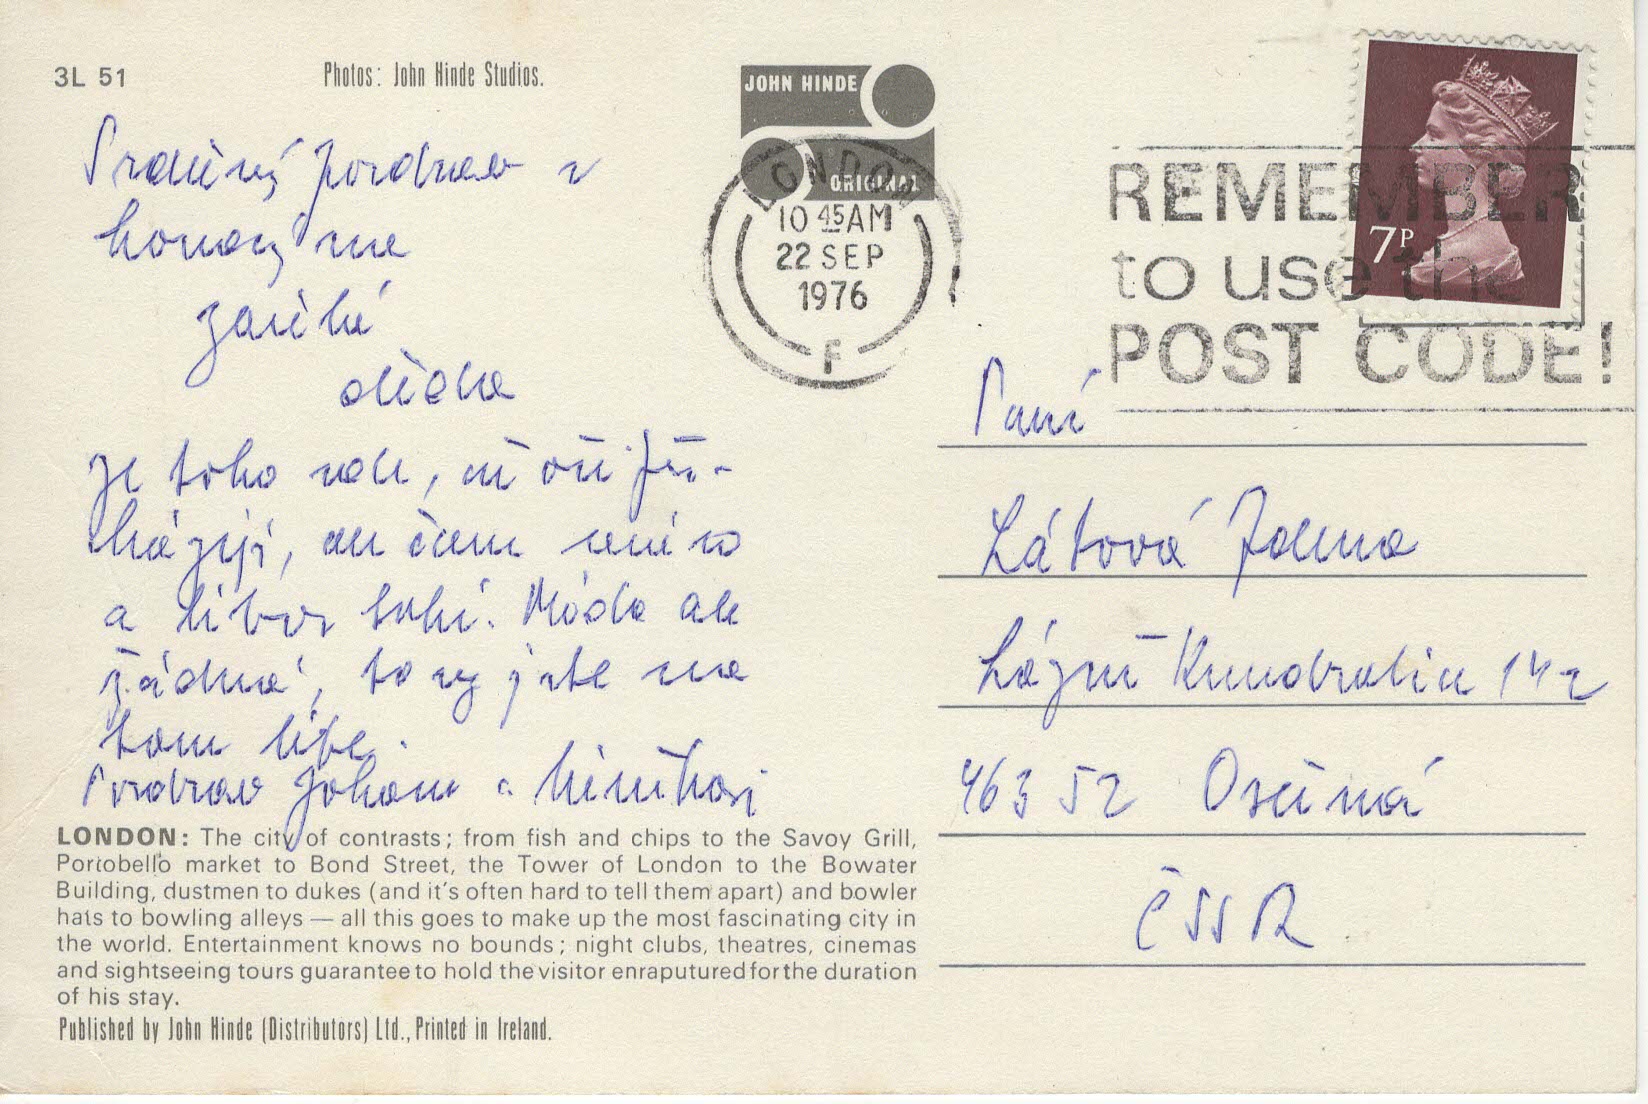 3L 51
Photos: John Hinde Studios.
JOHN HINDE
ORIGINAL
LONDON
10 45 AM
22 SEP
1976
F
REMEMBER
to use the
POST CODE!
7P
Srdečný pozdrav z
na
září
Je toho moc, oči
, ale není to
a takí. Móda ale
žádná, to vy jste na
tom lépe.
Pozdrav a
Paní
Látová
Lázně Kundratice 142
463 52 Osečná
ČSSR
LONDON: The city of contrasts; from fish and chips to the Savoy Grill,
Portobello market to Bond Street, the Tower of London to the Bowater
Building, dustmen to dukes (and it's often hard to tell them apart) and bowler
hats to bowling alleys — all this goes to make up the most fascinating city in
the world. Entertainment knows no bounds; night clubs, theatres, cinemas
and sightseeing tours guarantee to hold the visitor enraputured for the duration
of his stay.
Published by John Hinde (Distributors) Ltd., Printed in Ireland.